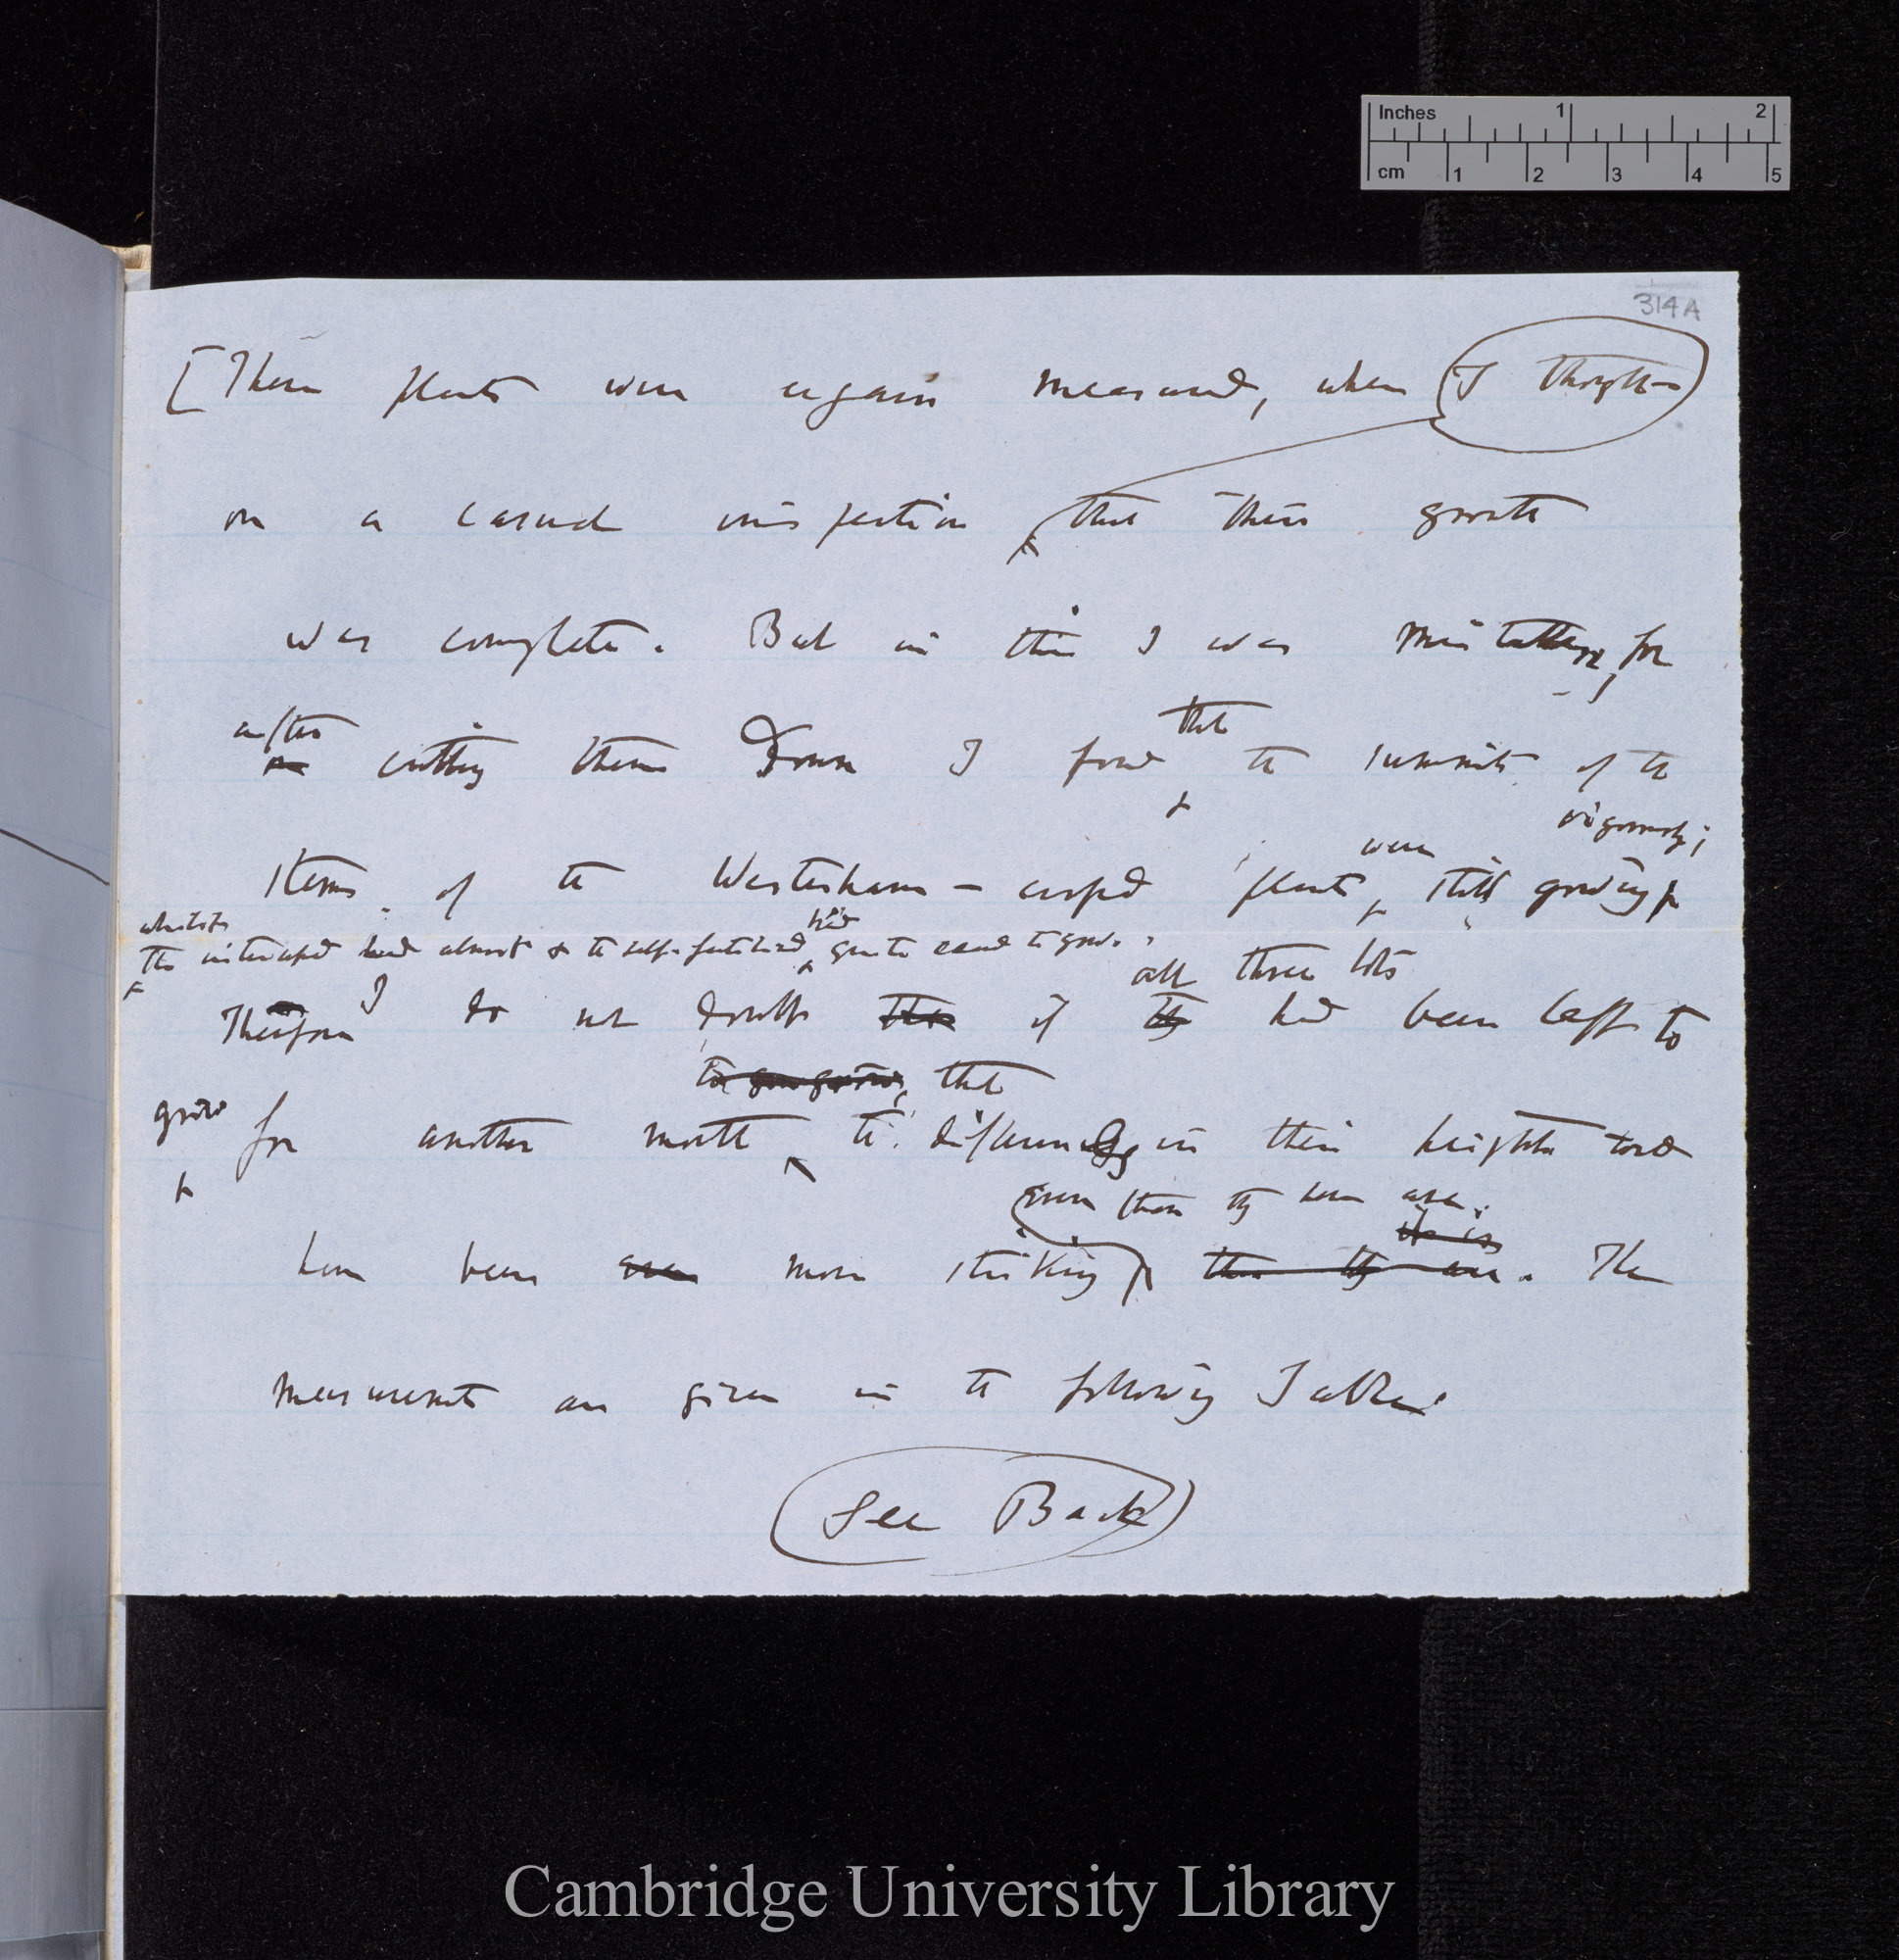 314A
[These plants were again measured, when I thought
on a casual inspection that their growth
was complete. But in this I was mistaken, for
after
on cutting them down I found that the summits of the
vigorously;
were
stems of the Westerham-crossed plants still growing
whilst
had
the intercrossed had almost & the self-fertilised quite ceased to grow.
all three lots
Therefore I do not doubt that if they had been left to
to grow, that
grow for another month the differences in their heights would
even than they here are.
it is
have been even more striking than they are. The
measurements are given in the following Table
(See Back)
Inches 1 2
cm 1 2 3 4 5
Cambridge University Library